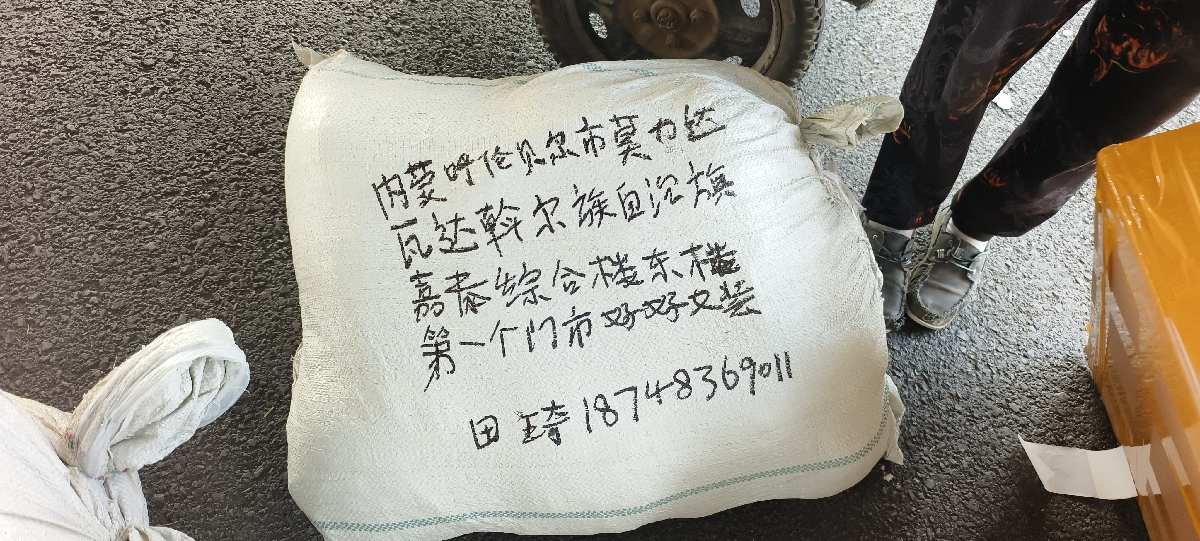 内蒙呼伦贝尔市莫力达
瓦达斡尔族自治旗
嘉泰综合楼东楼
第一个门市好好女装
田琦18748369011